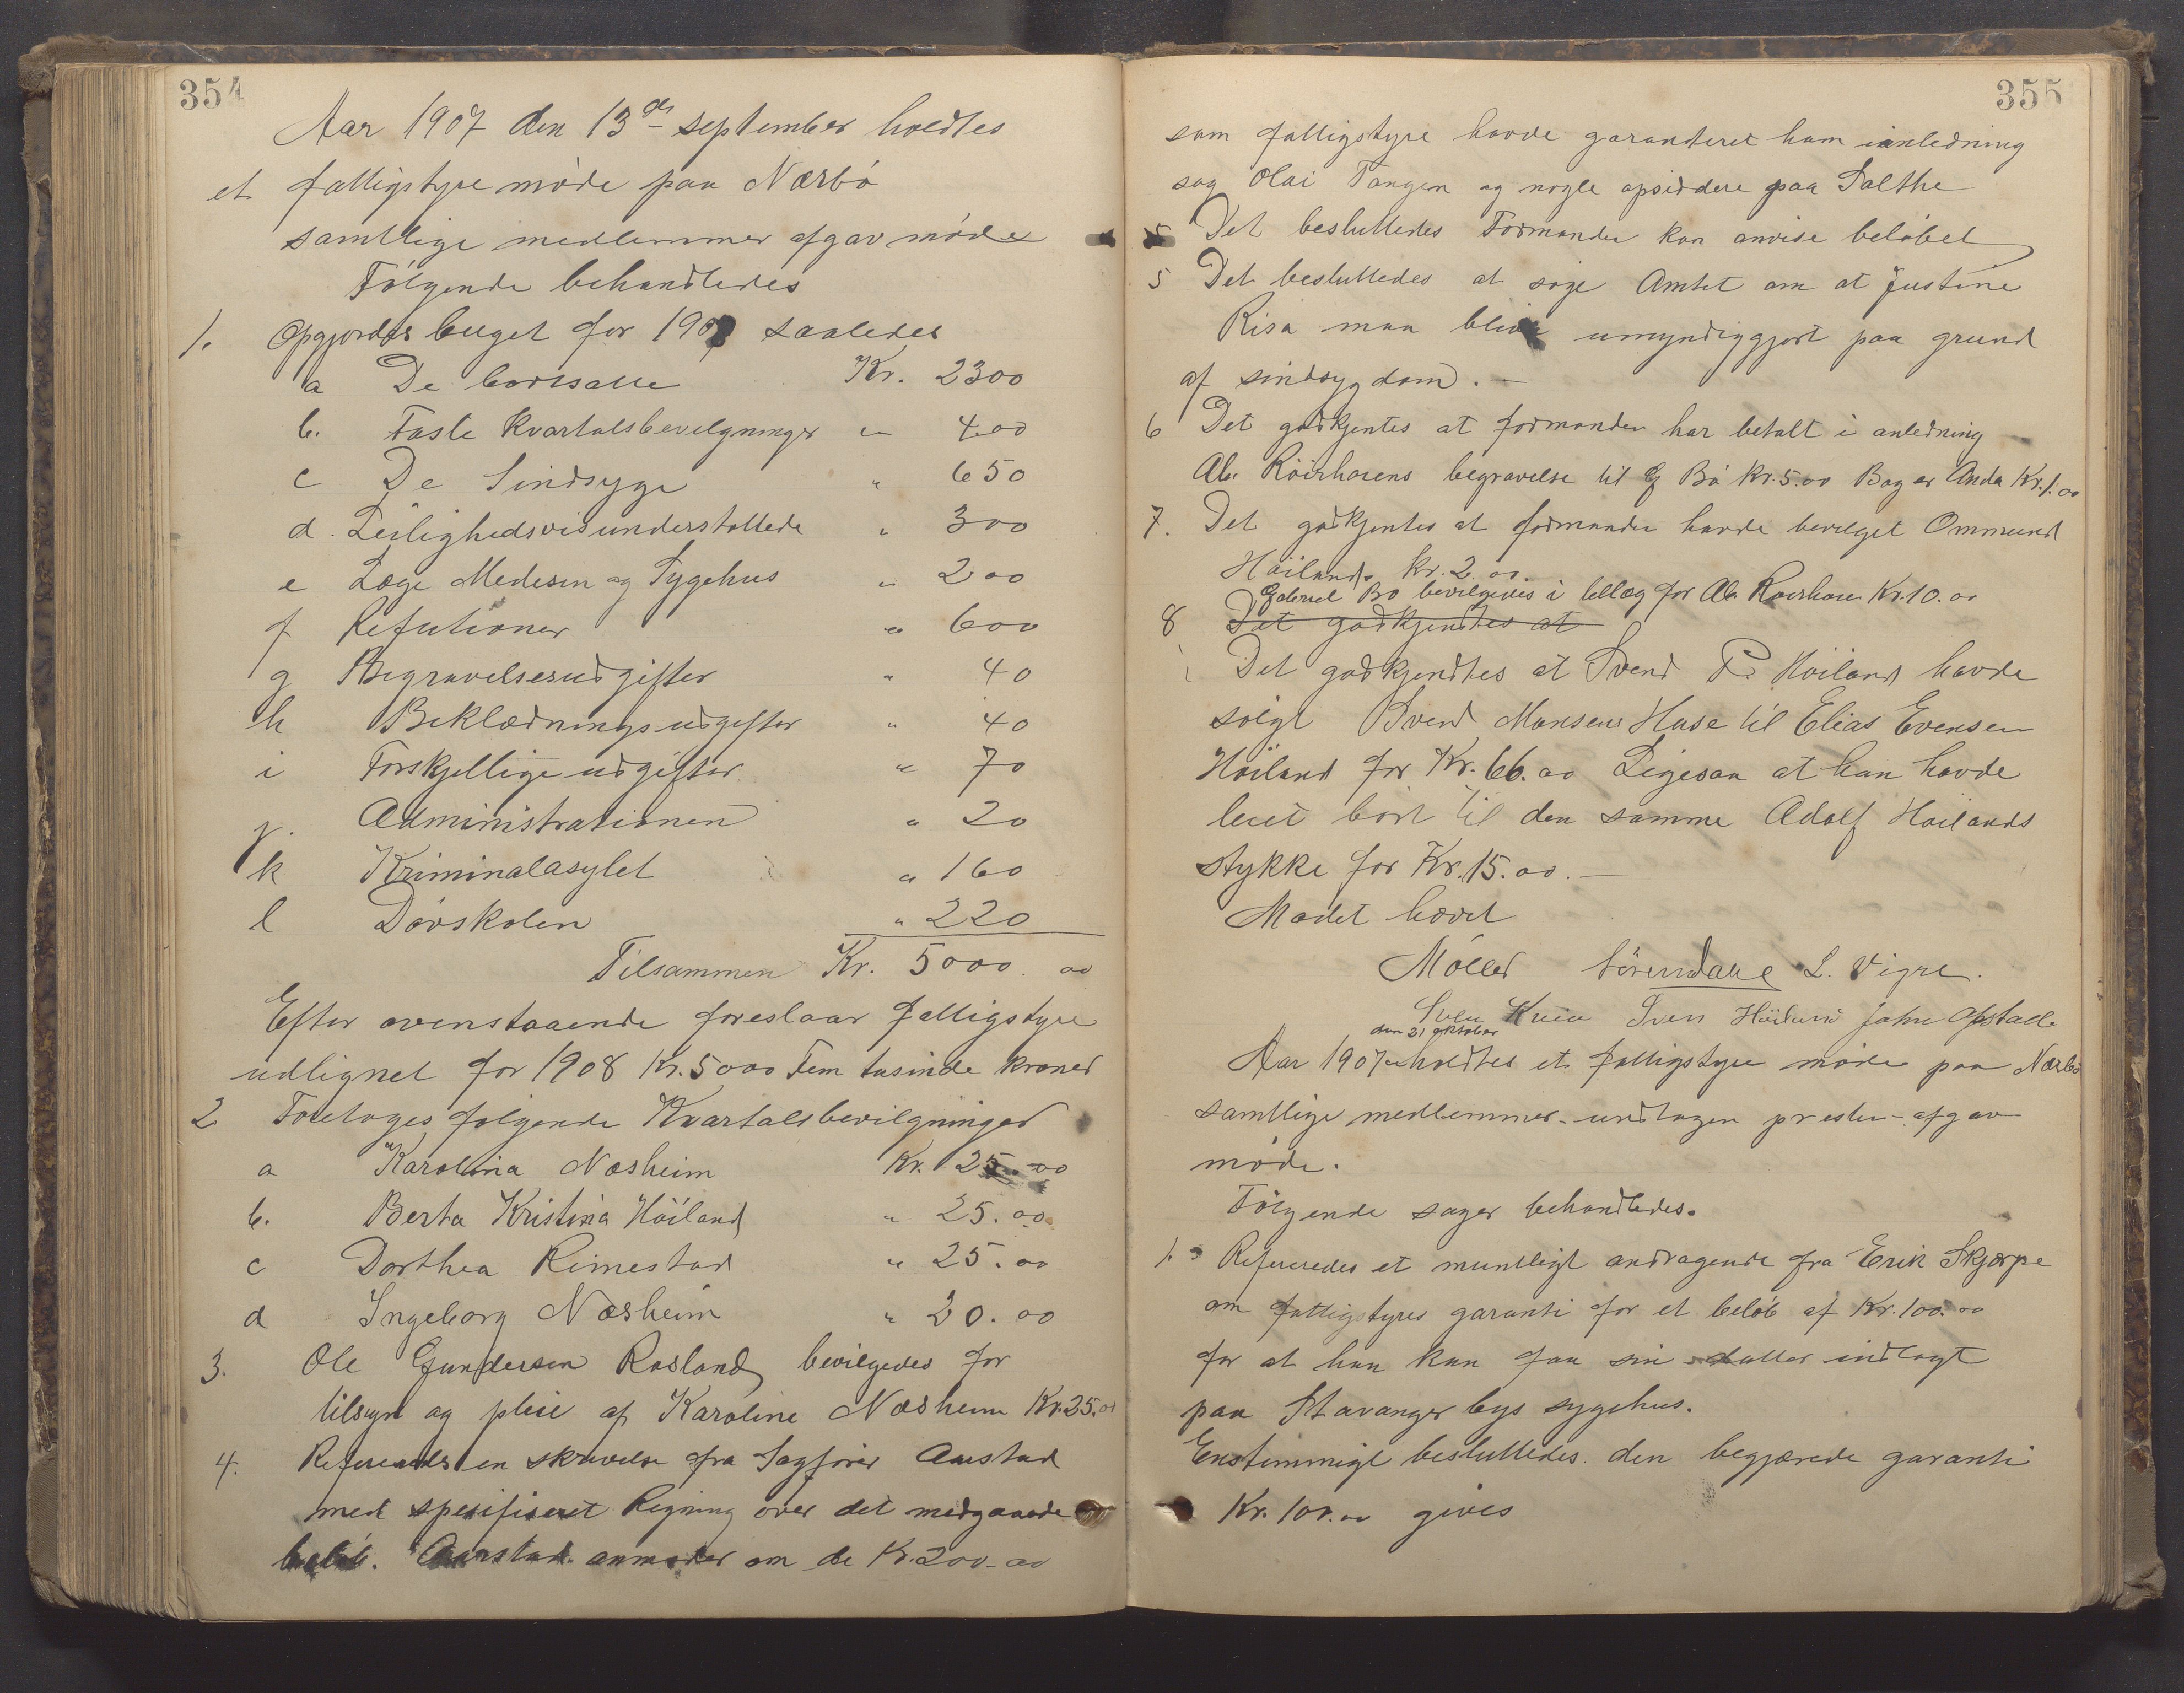 354
Aar 1907 den 13de september holdtes
et fattigstyremøde paa Nærbö
samtlige medlemmer afgav møde
Følgende behandledes
1. Opgjordes buget for 190 saaledes
a De bortsatte Kr. 2300
b. Faste Kvartalsbevelgninger " 400
c De Sindsyge " 650
d. Leilighedsvisunderstøttede " 300
e Læge Medesin og Sygehus " 200
f Refutioner " 600
g Begravelsesudgifter " 40
h Beklædningsudgifter " 40
i Forskjellige udgifter " 70
j. Administrationen " 20
k Kriminalasylet " 160
l Døvskolen " 220
Tilsammen Kr. 5000.00
Efter ovenstaaende foreslaar fattigstyre
udlignet for 1908 Kr. 5000 Fem tusinde kroner
2 Foretoges følgende Kvartalsbevilgninger
a Karolina Næsheim Kr. 25.00
b. Berta Kristina Höiland " 25.00
c Dorthea Rimestad " 25.00
d Ingeborg Næsheim " 20.00
3. Ole Gundersen Rosland bevilgedes for
tilsyn og pleie af Karoline Næsheim Kr. 25.00
4. Refereredes en skrivelse fra Sagfører Aarstad
med spesifiseret Regning over det medgaaede
beløb. Aarstad anmoder om de Kr. 200-00
355
som fattigstyre havde garanteret ham ianledning
sag Olai Tangen og nogle opsiddere paa Salthe
Det besluttedes Formanden kan anvise beløbet
5 Det besluttedes at søge Amtet om at Justine
Risa maa blive umyndiggjort paa grund
af sindsygdom. -
6 Det godkjentes at formanden har betalt i anledning
Ab. Röirhorens begravelse til G Bö Kr. 5.00 Bager Anda Kr. 1.00
7. Det godkjentes at formanden havde bevilget Ommund
Höiland Kr. 2.00.
Gabriel Bø bevilgedes i tillæg for Ab. Roirhoren Kr. 10.00
8 Det godkjendtes at
Det godkjendtes at Svend P. Höiland havde
solgt Svend Monsens Huse til Elias Evensen
Höiland for Kr. 66.00 Ligesaa at han havde
leiet bort til den samme Adolf Høilands
stykke for Kr. 15.00. -
Mødet hævet
Möller Sörensdalle L. Vigre.
Sven Kvia Sven Höiland John Opstad
den 21 oktober
Aar 1907 holdtes et fattigstyre møde paa Nærbö
samtlige medlemmer - undtagen presten - afgav
møde.
Følgende sager behandledes.
1. Refereredes et muntligt andragende fra Erik Skjærpe
om fattigstyres garanti for et beløb af Kr. 100.00
for at han kan faa sin datter indlagt
paa Stavanger bys sygehus.
Enstimmigt besluttedes den begjærede garanti
Kr. 100.00 gives